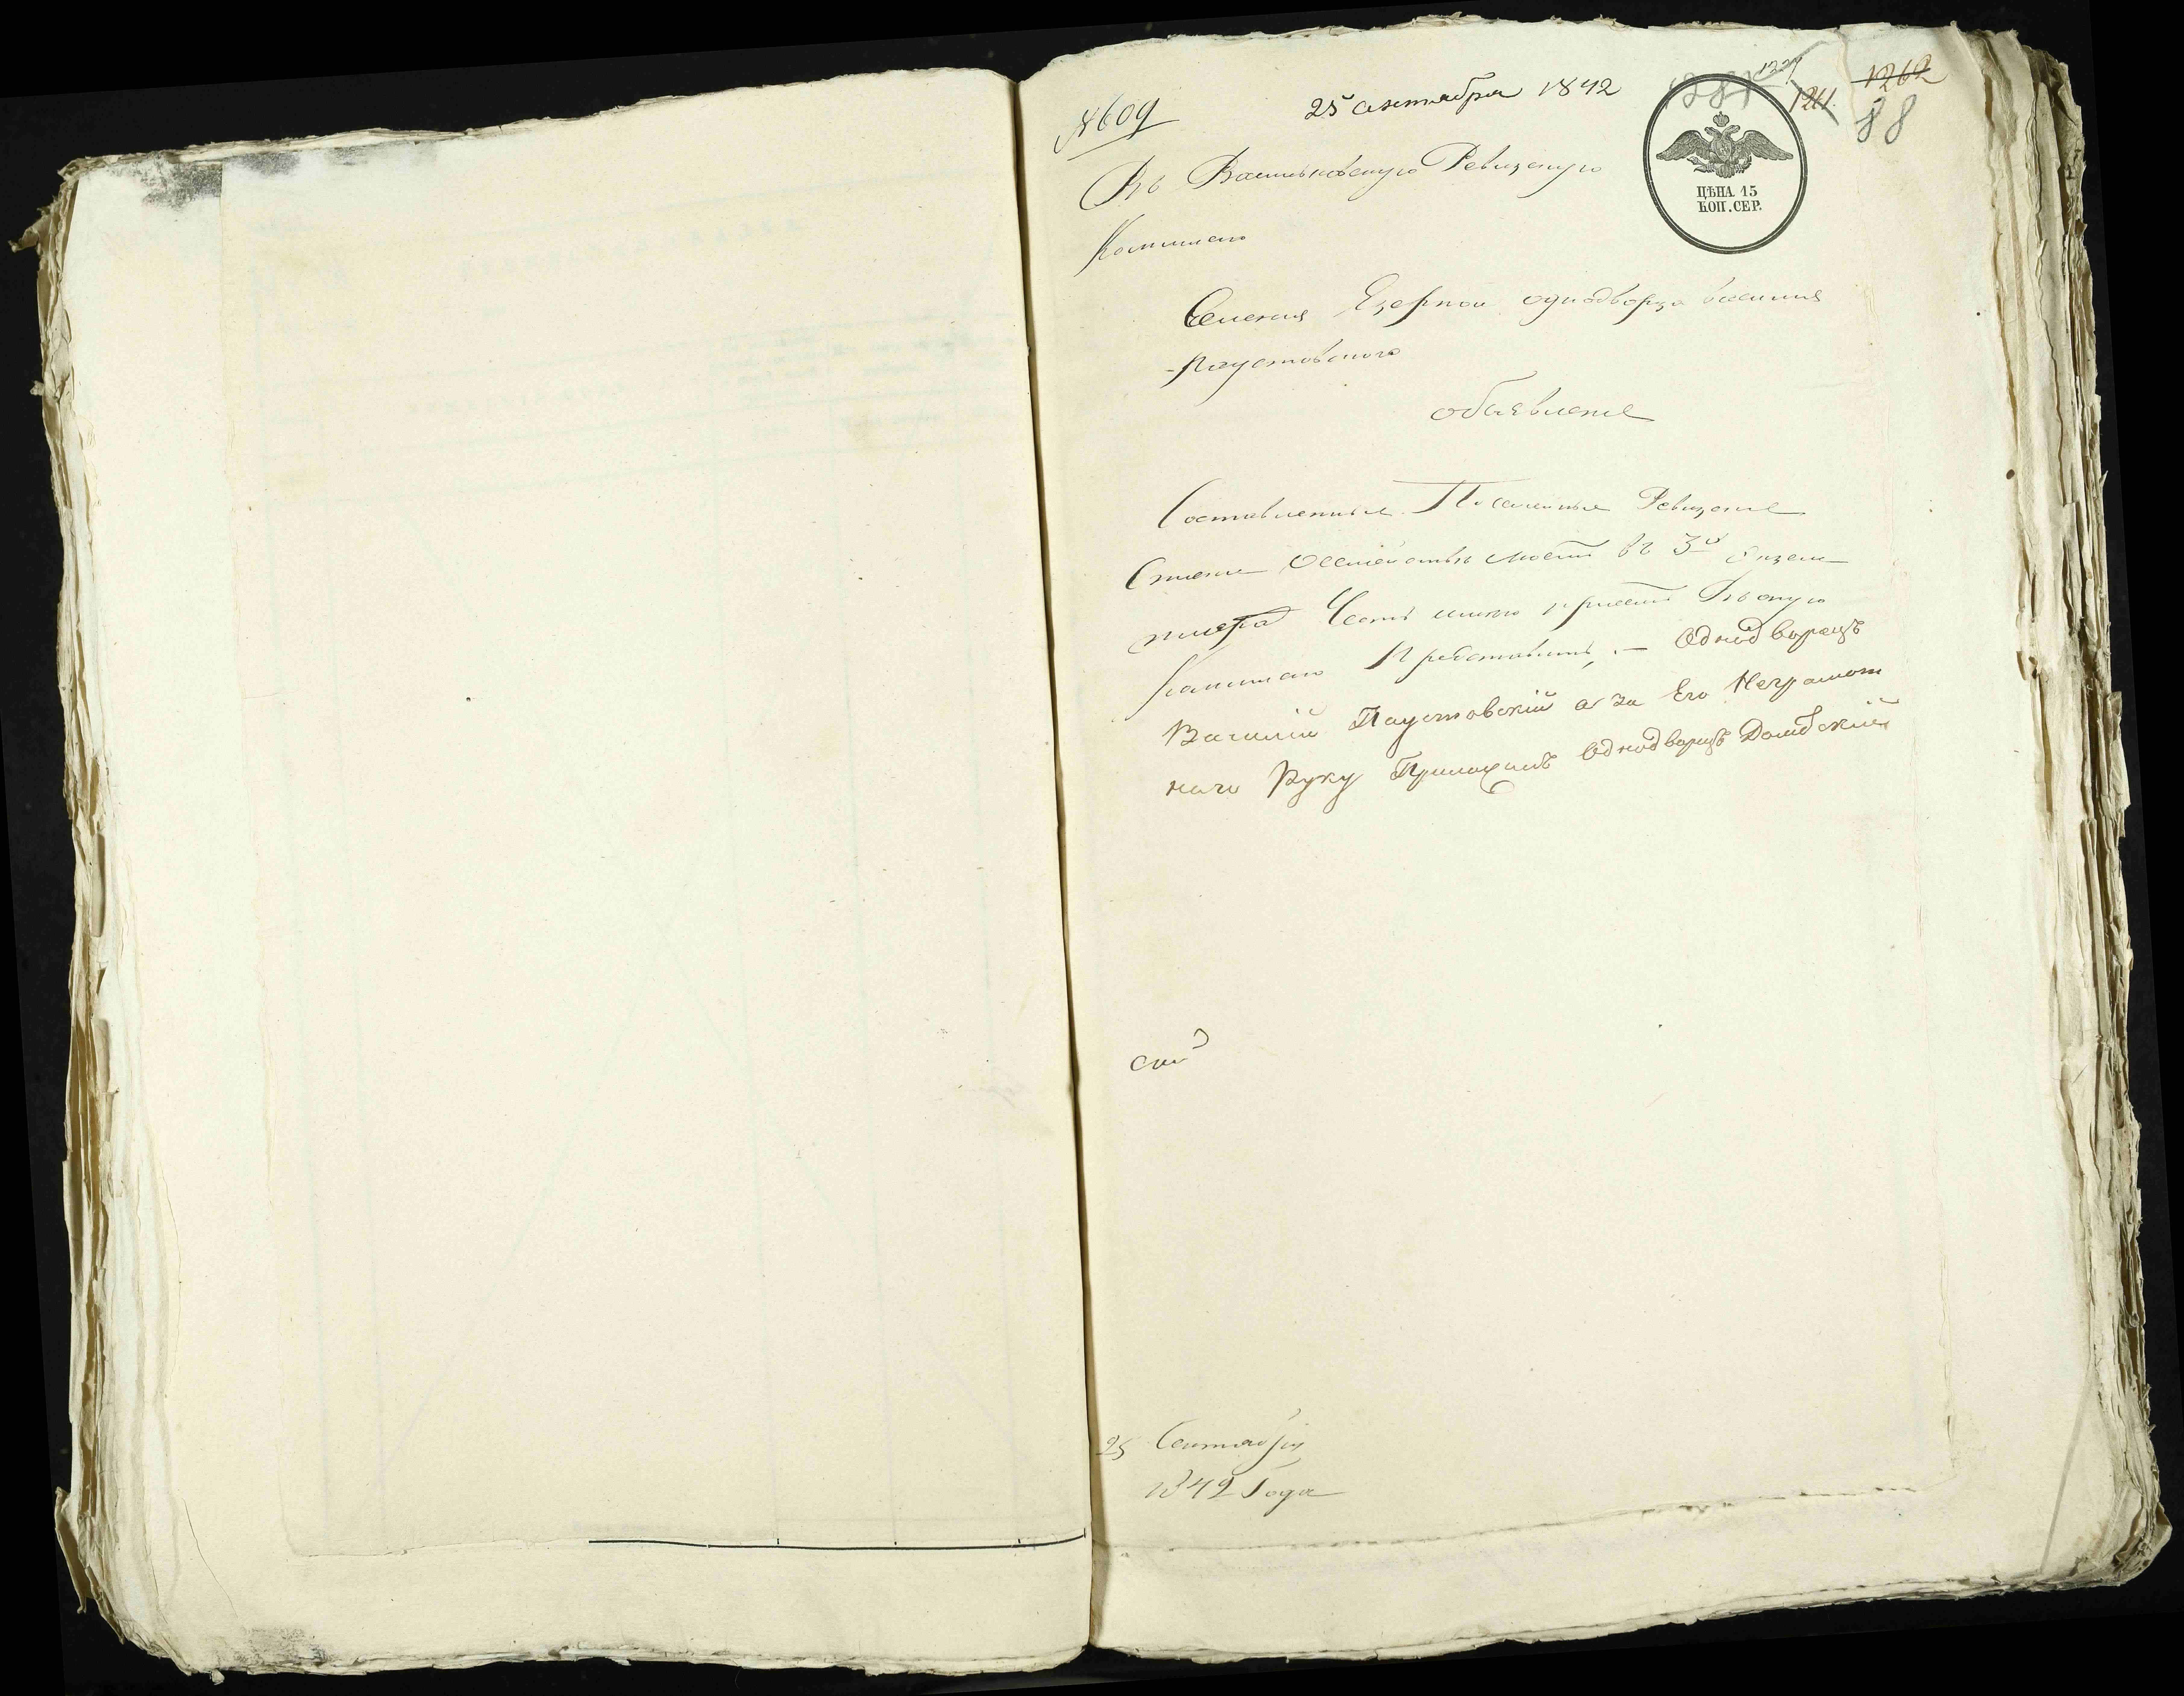 № 609
25 сентября 1842
1262
88
ЦѢНА 15
КОП. СЕР.
Въ Васильковскую Ревизскую
Комисию
Селенія Езерной однодворца василия
Паустовского
объявление
Составленные Посемейные Ревизские
о семействе моем въ 3х экзем
пляра Честь имею при сем Въ оную
Комисию Представить, — Однодворецъ
Василий Паустовский а за Его Неграмот
наго Руку Приложилъ Однодворецъ Домбский
25 Сентября
1842 Года